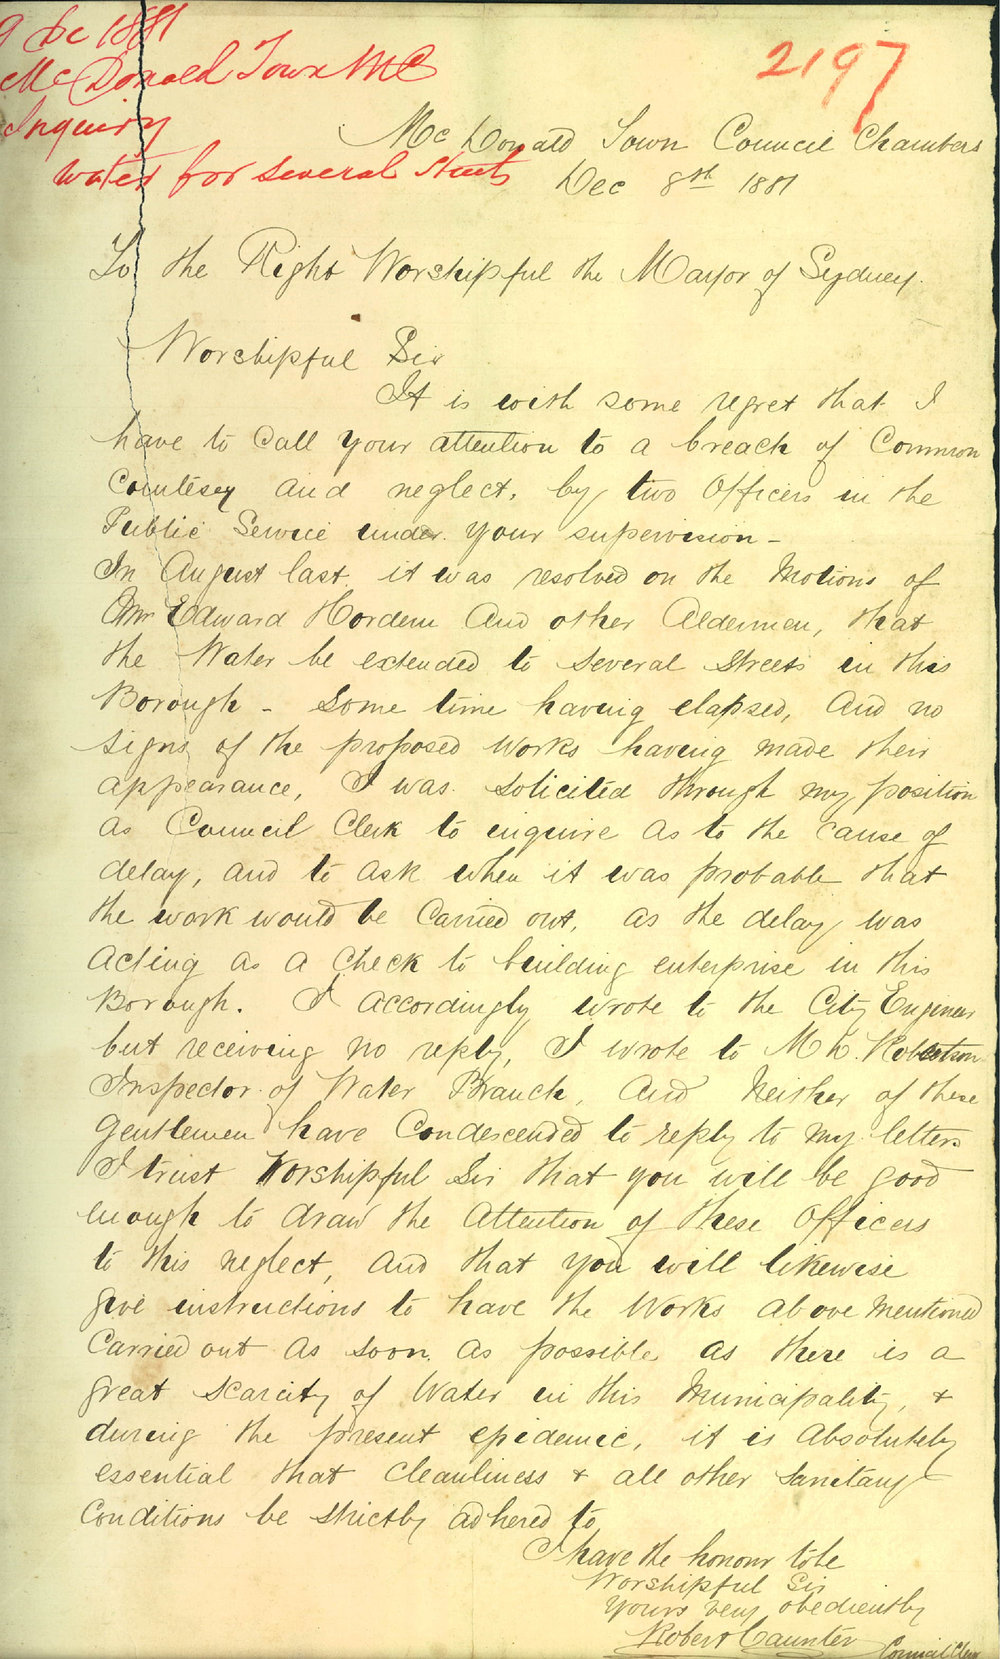 9 Dc 1881
McDonald Town MC
Inquiry
water for several Streets
2197
Mc Donald Town Council Chambers
Dec 8th 1881
To the Right Worshipful the Mayor of Sydney.
Worshipful Sir
It is with some regret that I
have to Call your attention to a breach of Common
Courtesey and neglect, by two Officers in the
Public Service under your supervision -
In August last, it was resolved on the Motions of
Mr Edward Hordern And other Aldermen, that
the Water be extended to several streets in this
Borough - Some time having elapsed, And no
signs of the proposed Works having made their
appearance, I was solicited through my position
as Council Clerk to enquire as to the cause of
delay, and to ask when it was probable that
the work would be Carried out, as the delay was
Acting as a Check to building enterprise in this
Borough. I accordingly wrote to the City Engineer
but receiving no reply, I wrote to Mr Robertson
Inspector of Water Branch, And Neither of these
Gentlemen have Condescended to reply to my letters
I trust Worshipful Sir that you will be good
enough to draw the Attention of these Officers
to this neglect, and that you will likewise
give instructions to have the Works above mentioned
Carried out as soon as possible, as there is a
great scarcity of Water in this Municipality, &
during the present epidemic, it is Absolutely
essential that Cleanliness & all other Sanitary
Conditions be strictly adhered to
I have the honour to be
Worshipful Sir
Yours very obediently
Robert Caunter Council Clerk